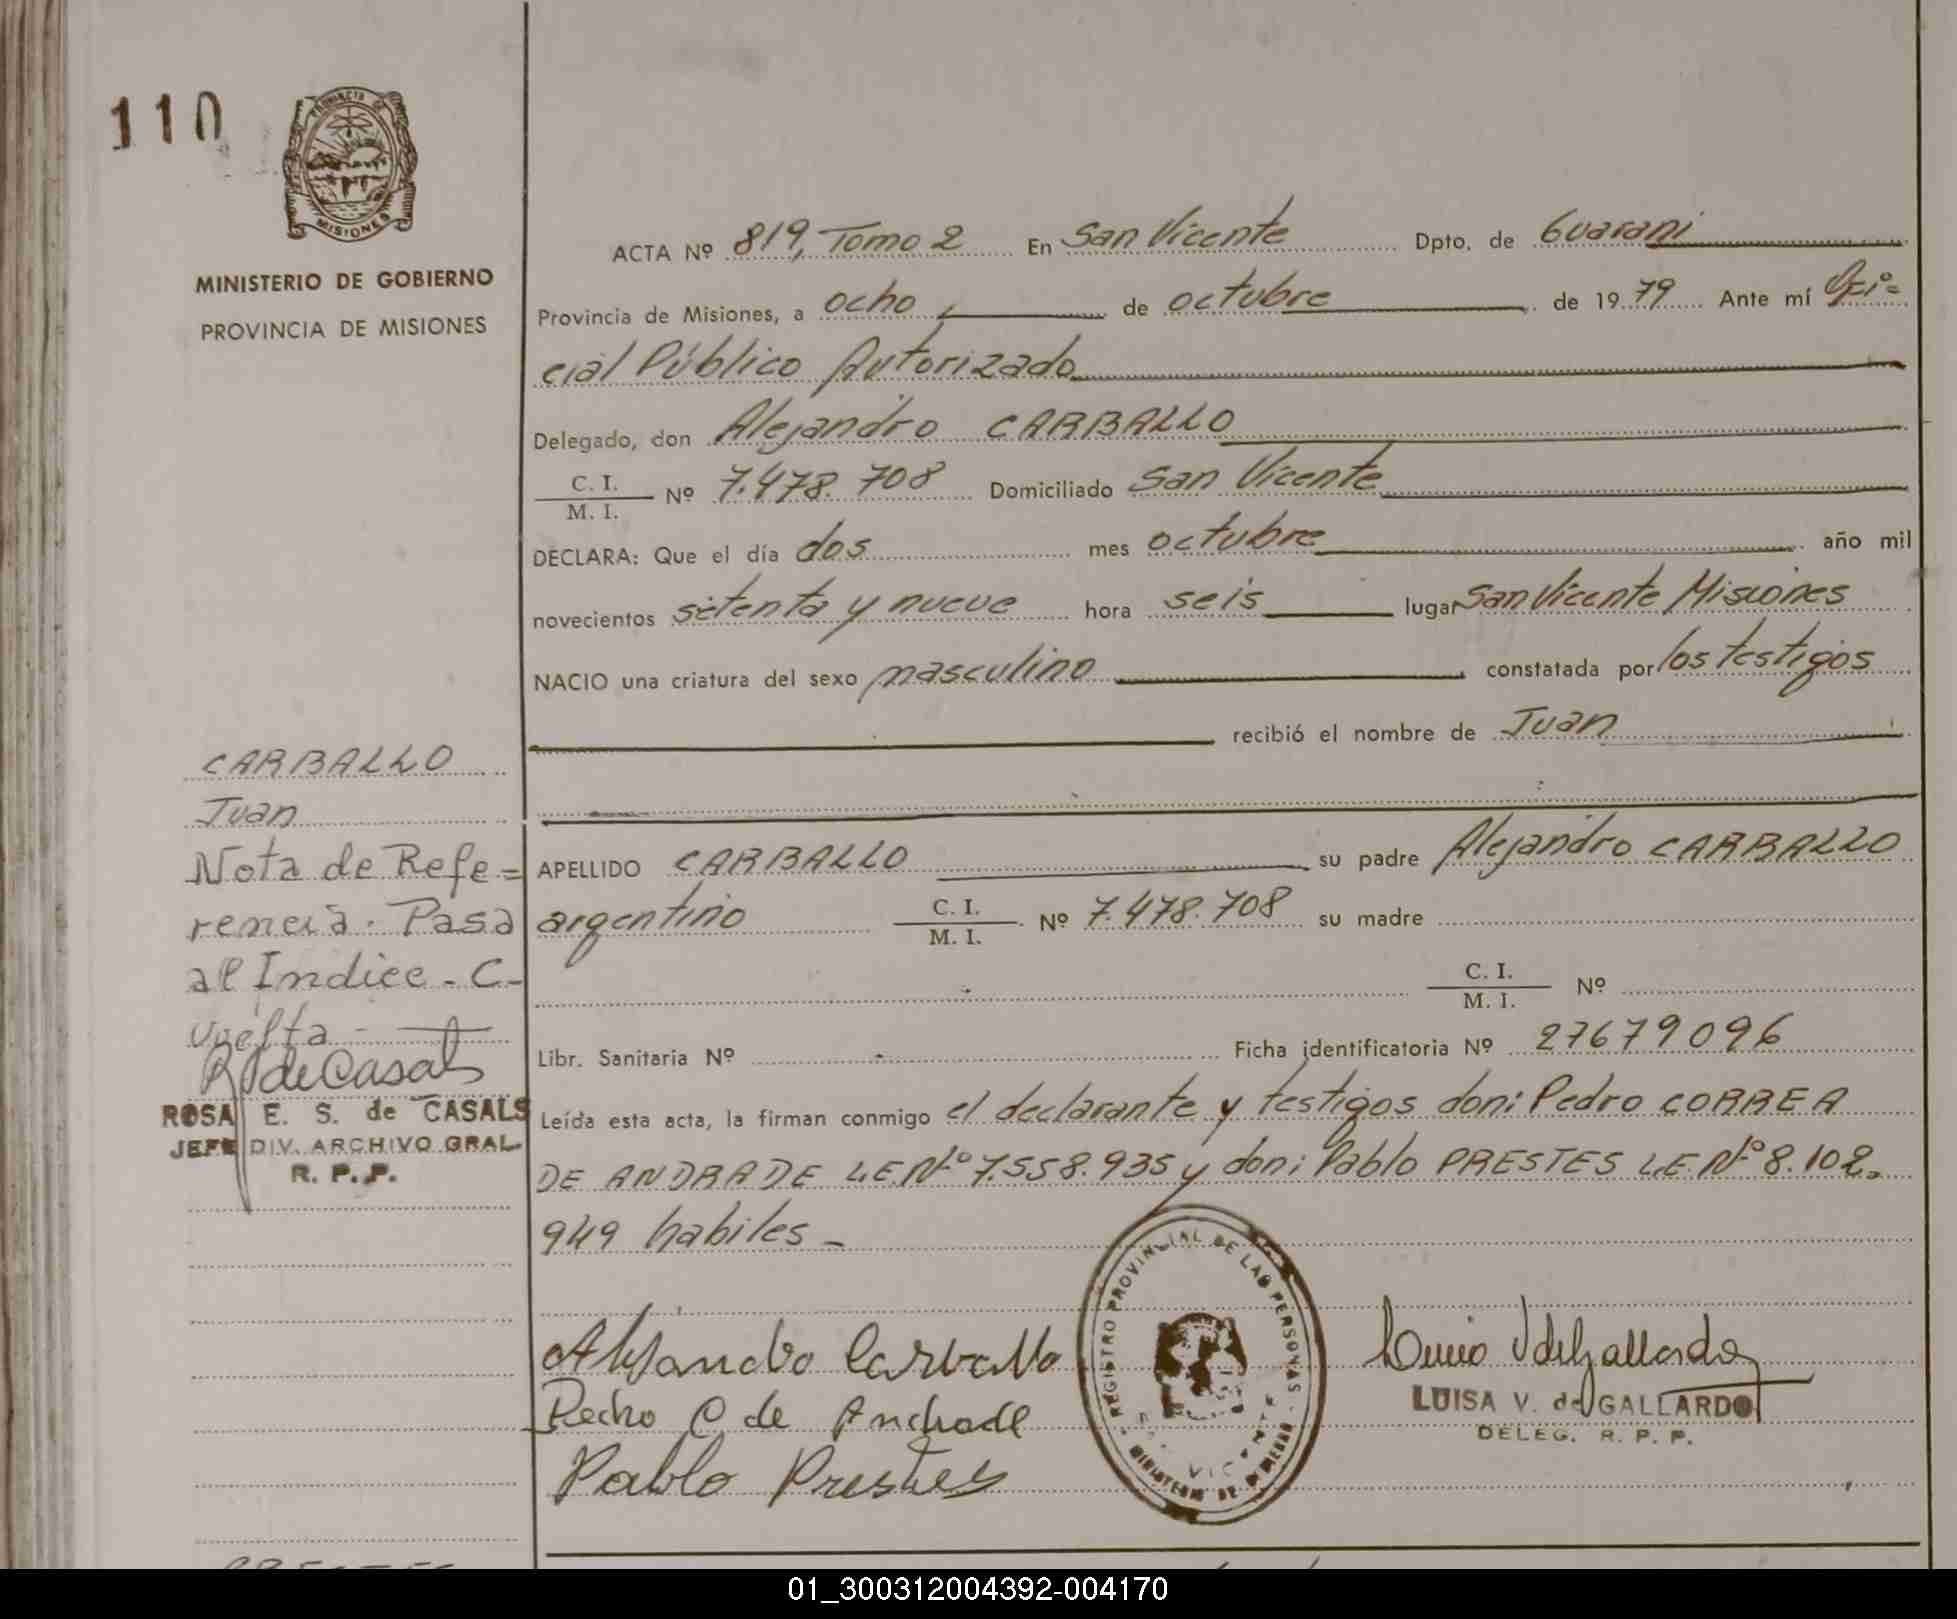 110
PROVINCIA DE
MISIONES
MINISTERIO DE GOBIERNO
PROVINCIA DE MISIONES
ACTA Nº 819, Tomo 2 En San Vicente Dpto. de Guarani
Provincia de Misiones, a ocho, de octubre de 1979 Ante mí Ofi=
cial Público Autorizado
Delegado, don Alejandro CARBALLO
C. I.
M. I. Nº 7.478.708 Domiciliado San Vicente
DECLARA: Que el día dos mes octubre año mil
novecientos setenta y nueve hora seis lugar San Vicente Misiones
NACIO una criatura del sexo masculino constatada por los testigos
recibió el nombre de Juan
CARBALLO
Juan
Nota de Refe=
rencia. Pasa
al Indice - C-
vuelta -
R de Casals
ROSA E. S. de CASALS
JEFE DIV. ARCHIVO GRAL.
R. P. P.
APELLIDO CARBALLO su padre Alejandro CARBALLO
argentino C. I.
M. I. Nº 7.478.708 su madre
C. I.
M. I. Nº
Libr. Sanitaria Nº Ficha identificatoria Nº 27679096
Leída esta acta, la firman conmigo el declarante y testigos don: Pedro CORREA
DE ANDRADE L.E.Nº 7.558.935 y don: Pablo PRESTES L.E.Nº 8.102.
949 habiles -
Alejandro Carvallo
Pedro C de Andrade
Pablo Prestes
REGISTRO PROVINCIAL DE LAS PERSONAS
MINISTERIO DE GOBIERNO
LUISA V. de GALLARDO
DELEG. R. P. P.
01_300312004392-004170